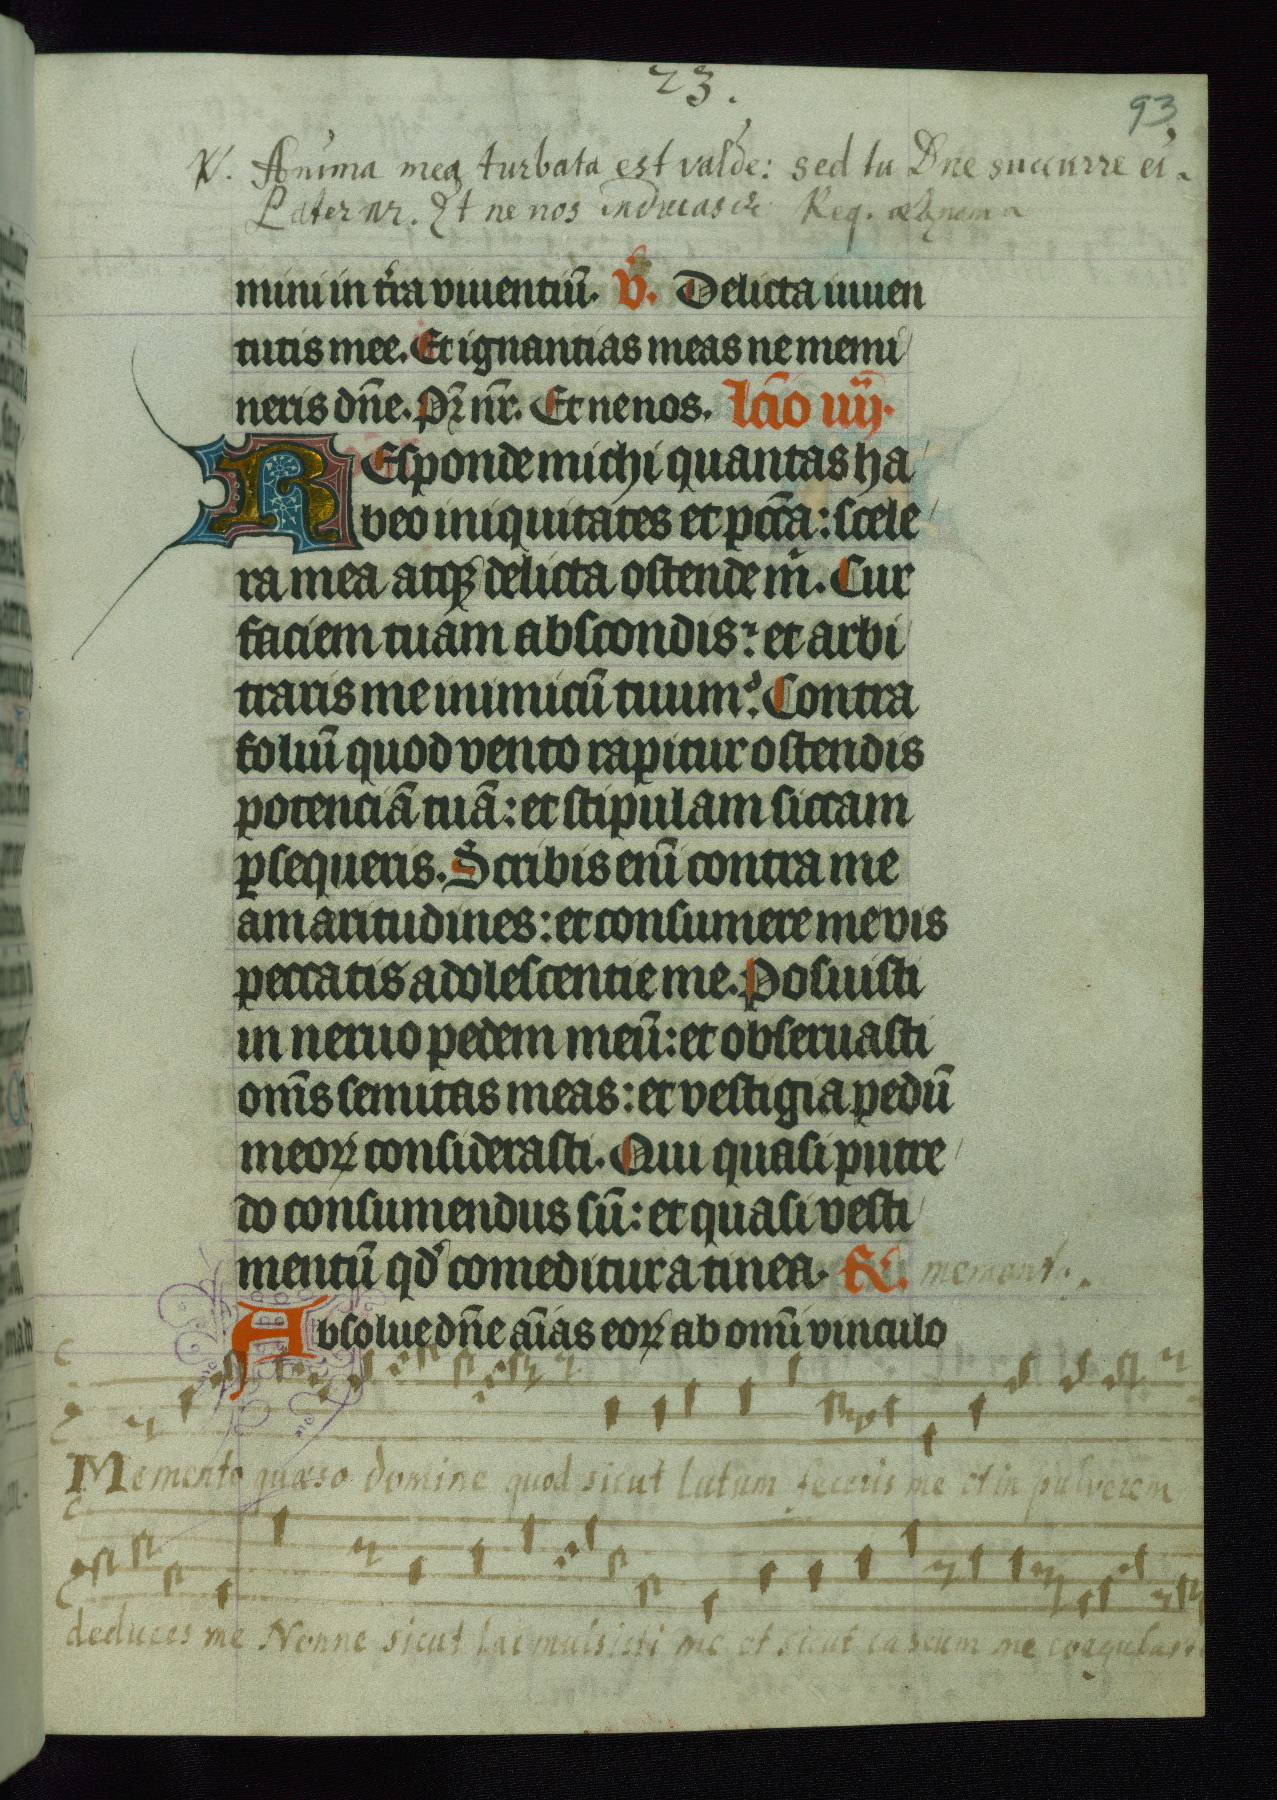 23.
93
V. Anima mea turbata est valde: sed tu Dne succurre ei.
Pater nr. Et ne nos inducas Req. æternam
mini in tr̄a viuentiū. V̄. Delicta iuuen
tutis mee. Et ignantias meas ne memi
neris dn̄e. Pr̄ nr̄. Et ne nos. lc̄io iiij.
REsponde michi quantas ha
beo iniquitates et pcc̄a: scele
ra mea atqꝫ delicta ostende m̄. Cur
faciem tuam abscondis: et arbi
traris me inimicū tuum. Contra
foliū quod vento rapitur ostendis
potenciā tuā: et stipulam siccam
ꝑsequeris. Scribis enī contra me
amaritudines: et consumere me vis
peccatis adolescentie me. Posuisti
in neruo pedem meū: et obseruasti
om̄s semitas meas: et vestigia pedū
meoꝝ considerasti. Qui quasi putre
do consumendus sū: et quasi vesti
mentū qd̄ comeditur a tinea. R̄. memento.
Absolue dn̄e aīas eoꝝ ab omī vinculo
Memento quæso domine quod sicut lutum feceris me et in pulverem
deduces me Nonne sicut lac mulsisti me et sicut caseum me coagulasti